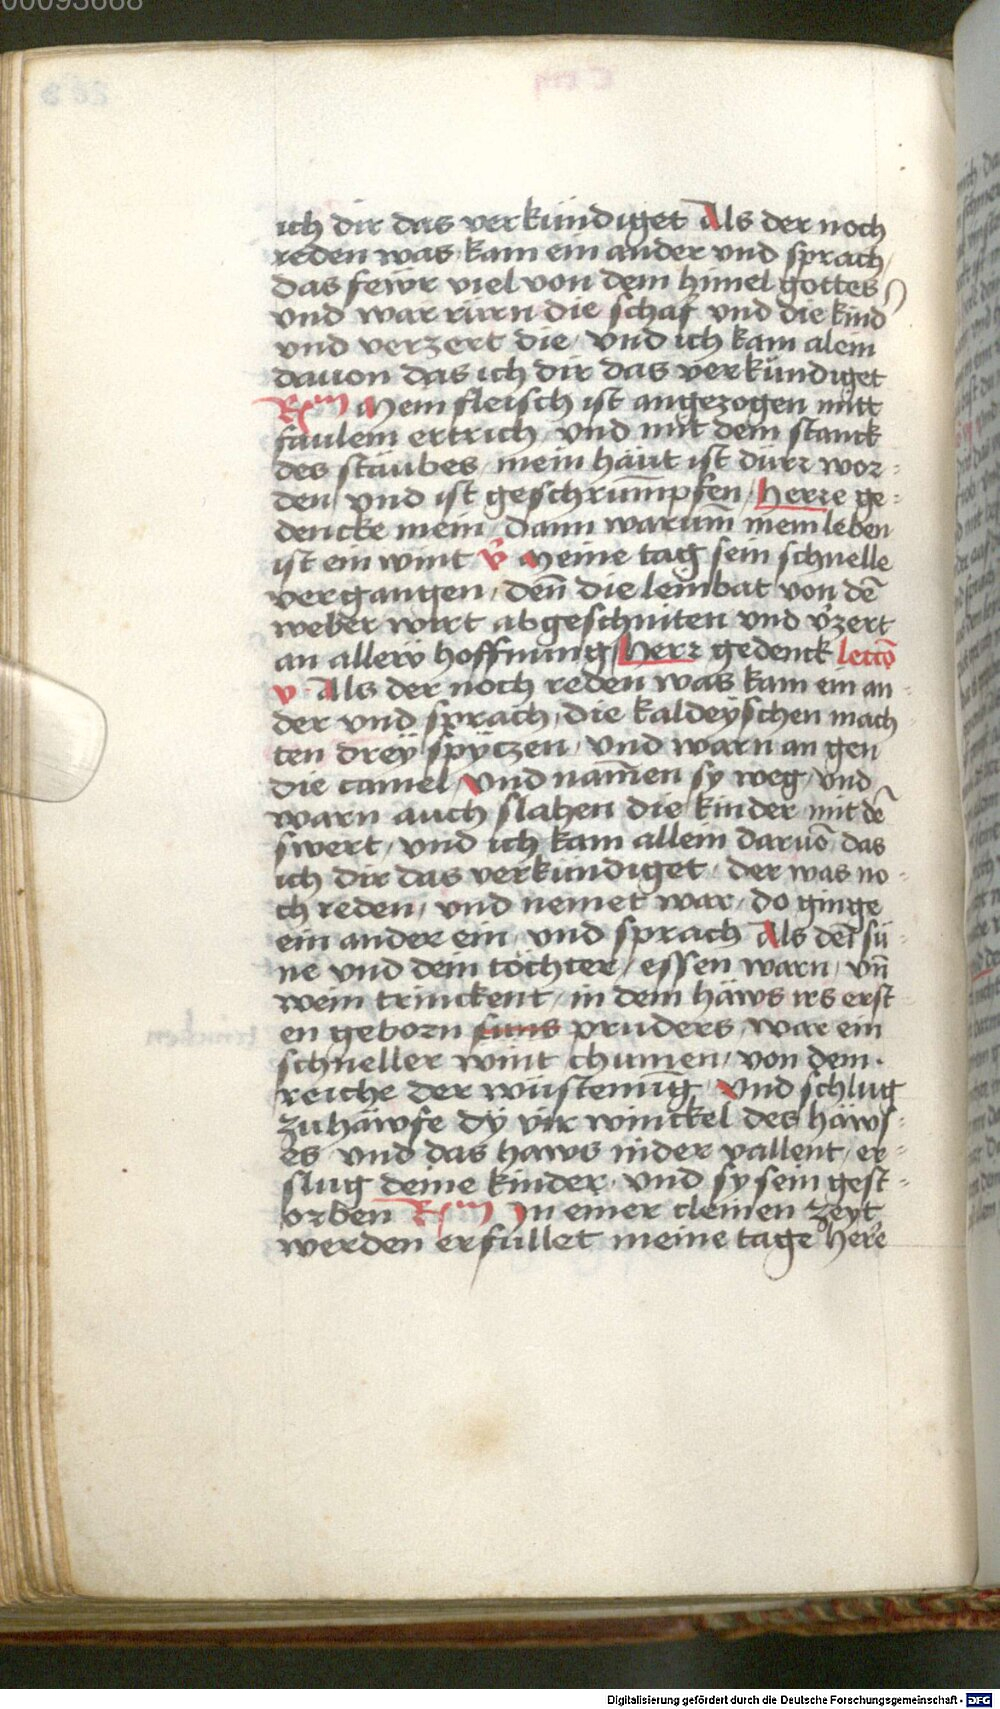 00093668
ich dir das verkündiget Als der noch
reden was kam ein ander vnd sprach /
das fewr viel von dem himel gottes
vnd war rürn die schaf vnd die kind
vnd verzert die / vnd ich kam alein
dauon das ich dir das verkündiget
Mein fleisch ist angezogen mitt
faulem ertrich / vnd mit dem stanck
des staubes / mein haut ist dürr wor-
den / vnd ist geschrūmpfen / Herre ge-
dencke mein / Dann warum̄ mein leben
ist ein wint v̄ Meine tag sein schnelle
vergangen / den̄ die leinbat von dē
weber wirt abgeschniten vnd v̄zert
an aller hoffnung / Herr gedenck lectō
v · Als der noch reden was kam ein an-
der vnd sprach / die kaldeyschen mach
ten drey spyczen / vnd warn an gen
die camel / Vnd nam̄en sy weg / vnd
warn auch slahen die kinder mit dē
swert / vnd ich kam allein daruō das
ich dir das verkündiget / der was no-
ch reden / vnd nemet war / do ginge
ein ander ein / vnd sprach Als dein sü-
ne vnd dein töchter / essen warn / vn̄
wein trinckent / in dem häws irs erst
en geborn suns pruders / war ein
schneller wint chumen / von dem ·
reiche der wüstenu̅g / Vnd schlug
zu häwfe dy vir winckel des häws-
es vnd das haws nider vallent / er-
slug deine kinder / vnd sy sein gest-
orben In einer cleinen zeyt
werden erfullet meine tage herre
Digitalisierung gefördert durch die Deutsche Forschungsgemeinschaft - DFG